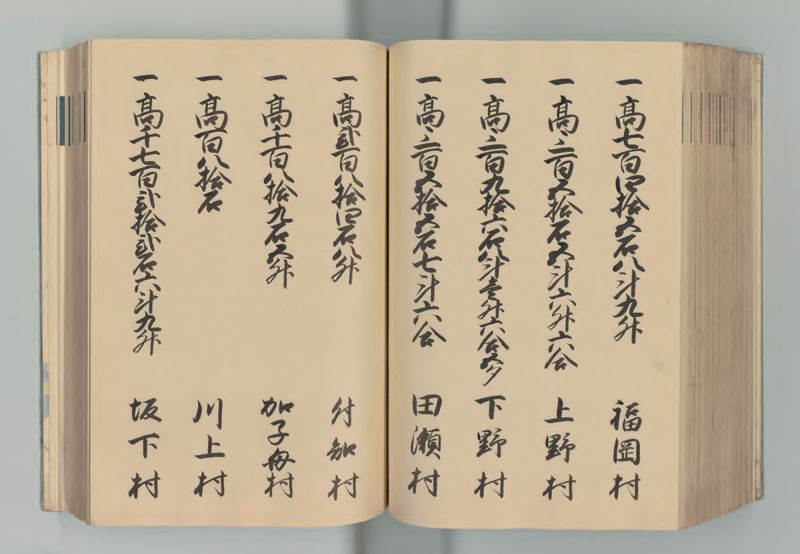 一高七百四拾五石八斗九升 福岡村
一高三百五拾石五斗六升六合 上野村
一高三百九拾六石八斗壱升六合五夕 下野村
一高三百五拾五石七斗六合 田瀬村
一高弐百八拾四石八升 付知村
一高千百八拾九石五升 加子母村
一高百八拾石 川上村
一高千七百弐拾弐石六斗九升 坂下村